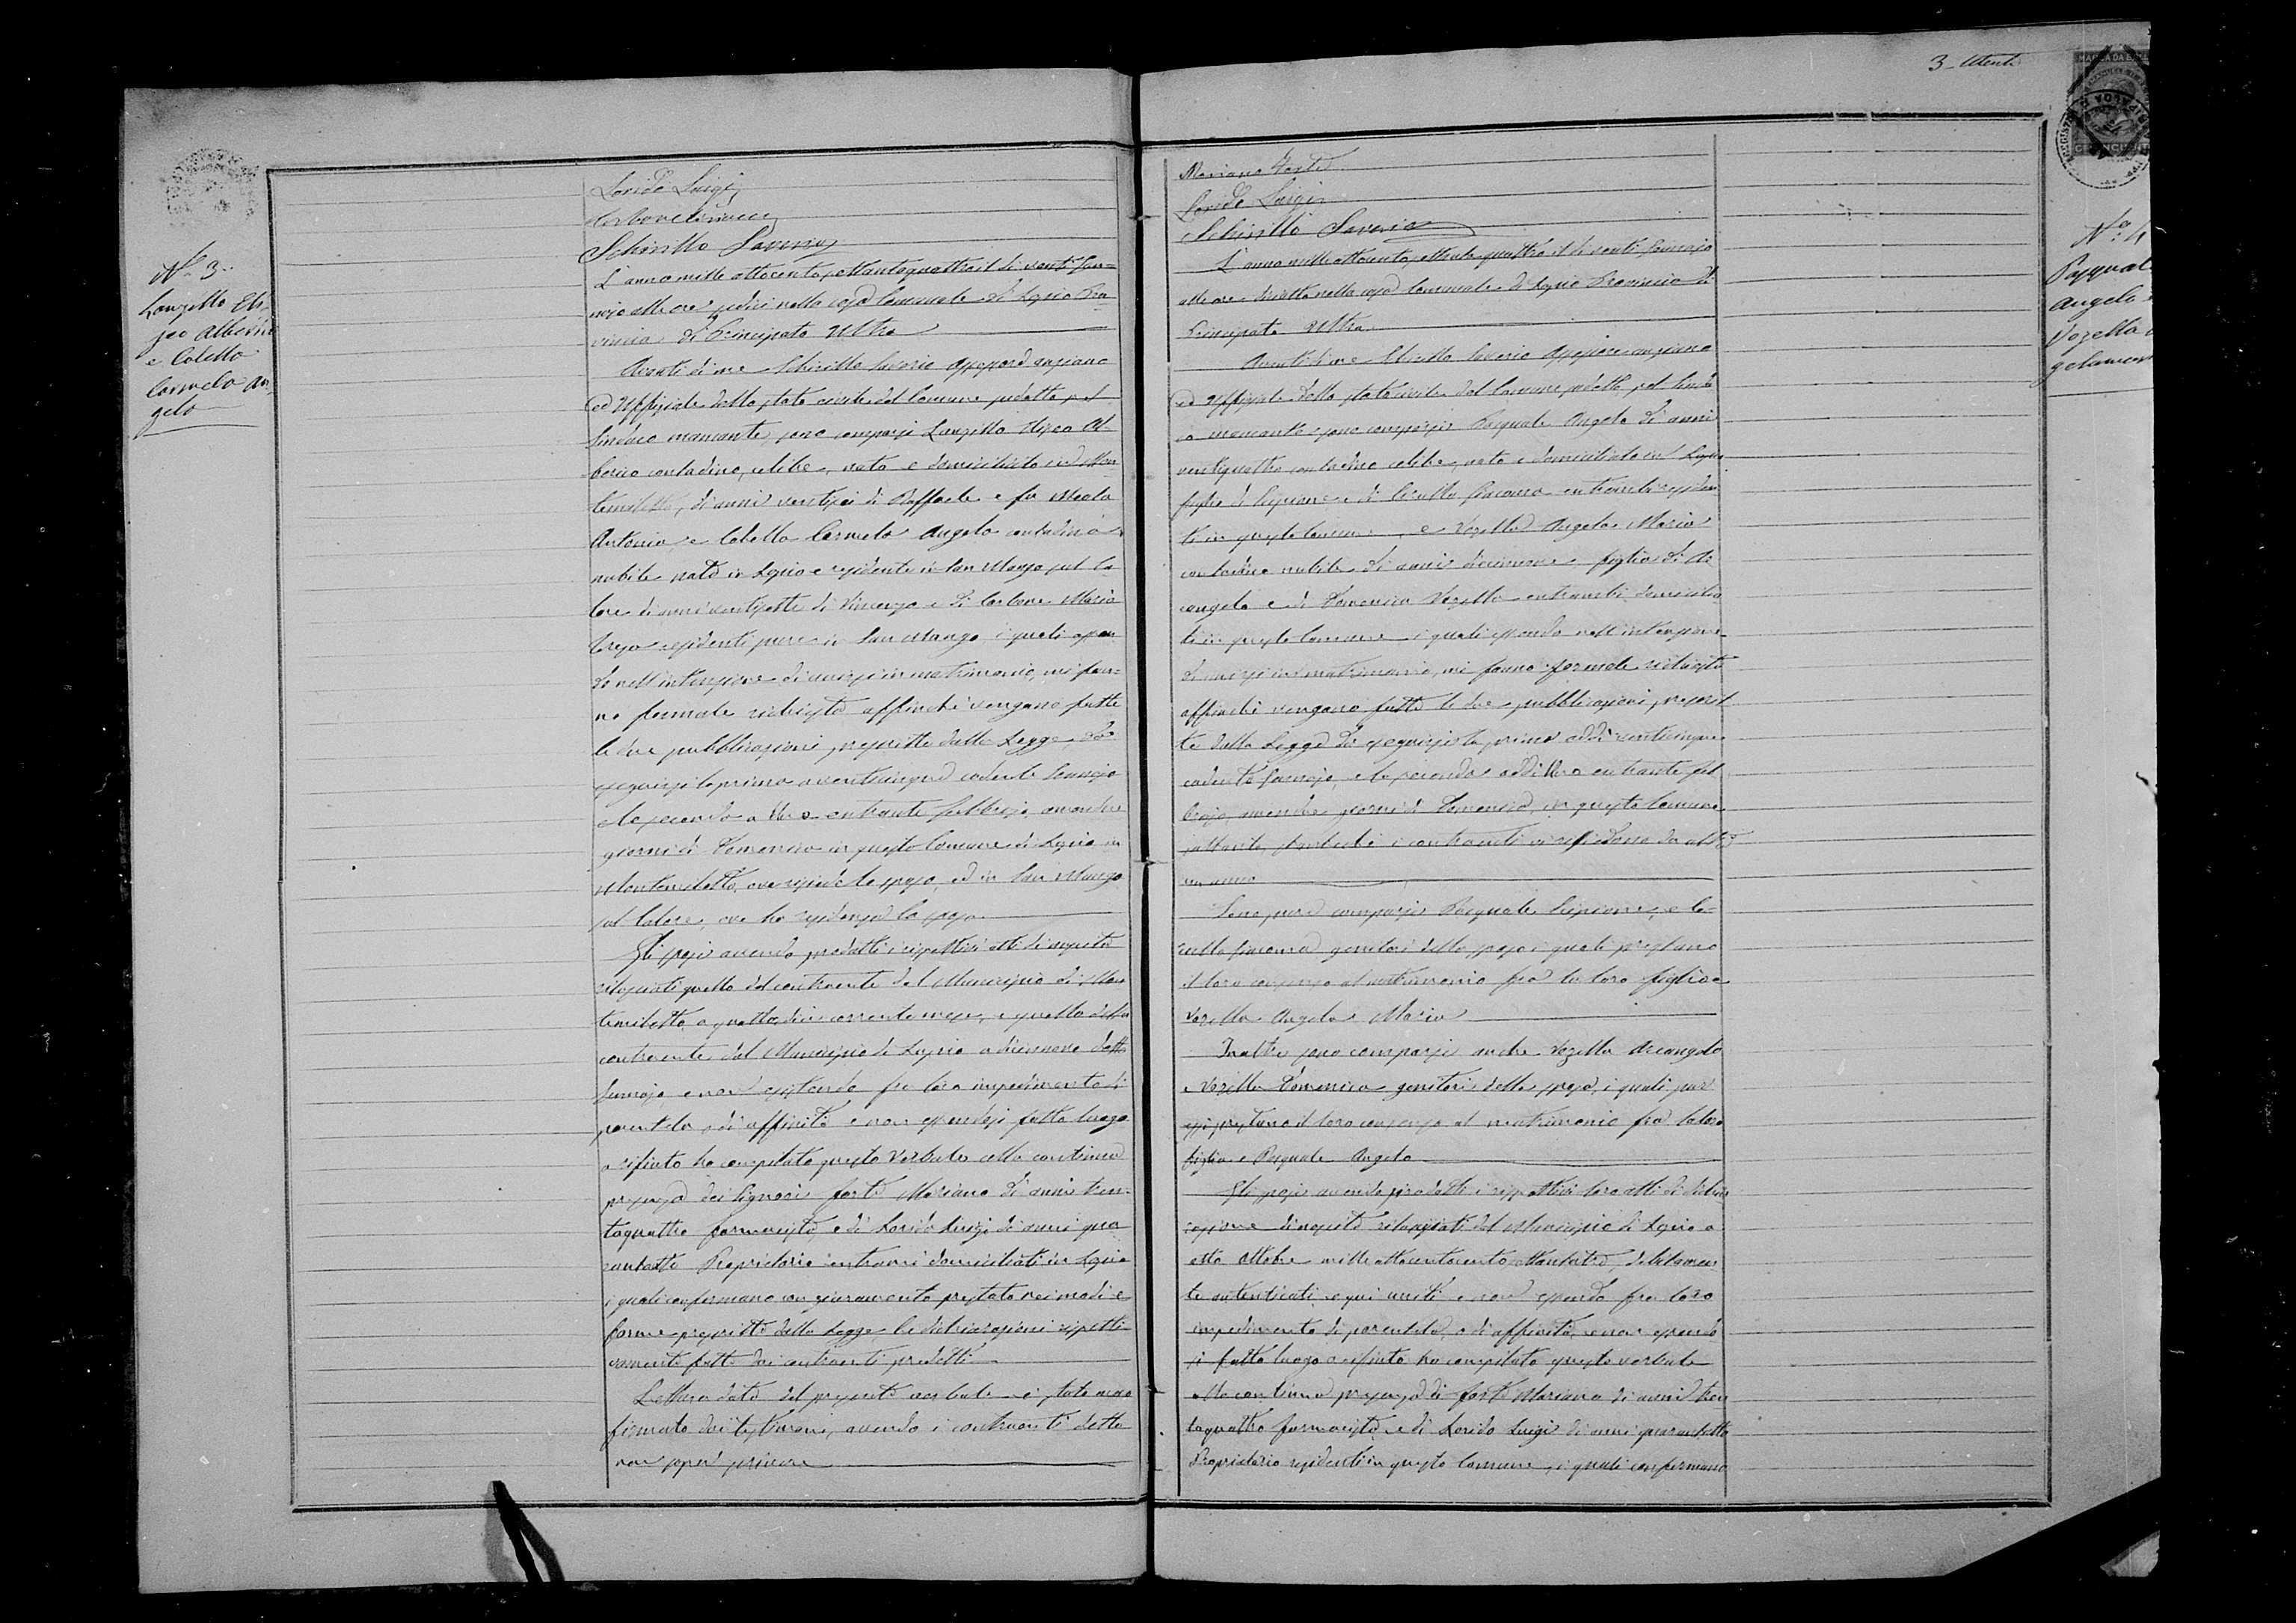 N.º 3.
Lanzillo Eli-
seo Alberico
e Cobello
Carmela An-
gela
Lorido Luigi
Schirillo Saverio
L'anno mille ottocento settantaquattro il dì venti Gen-
najo alle ore sedici nella casa Comunale di Lapio Pro-
vincia di Principato Ultra
Avanti di me Schirillo Saverio Assessore anziano
ed Uffiziale dello stato civile del Comune sudetto, pel
Sindaco mancante, sono comparsi Lanzillo Eliseo Al-
berico contadino, celibe, nato e domiciliato in Mon-
temiletto, di anni ventisei di Raffaele e fu
Antonia e Cobello Carmela Angela contadina
nubile nata in Lapio e residente in San Mango sul Ca-
lore di anni ventisette di Vincenzo e di Carbone Maria
residenti pure in San Mango i quali essen-
do nell'intenzione di unirsi in matrimonio, mi fan-
no formale richiesta affinchè vengano fatte
le due pubblicazioni prescritte dalla Legge, da
eseguirsi la prima a venticinque cadente Gennajo
e la seconda a Uno entrante febbrajo, amendue
giorni di Domenica in questo Comune di Lapio in
Montemiletto, ove risiede lo sposo, ed in San Mango
sul Calore, ove ha residenza la sposa
Gli sposi avendo prodotti i rispettivi atti di nascita
rilasciati quello del contraente dal Municipio di Mon
temiletto a quattordici corrente mese, e quello della
contraente dal Municipio di Lapio a diciannove detto
Gennajo e non esistendo fra loro impedimento di
parentela, o di affinità e non essendosi fatto luogo
a rifiuto ho compilato questo Verbale colla continua
presenza dei Signori Forte Mariano di anni tren-
taquattro farmacista e di Lorido Luigi di anni qua
rantotto Proprietario entrambi domiciliati in Lapio
i quali confermano con giuramento prestato nei modi e
forme prescritte dalla Legge le dichiarazioni rispetti
vamente fatte dai contraenti predetti
Lettura data del presente verbale è stato meco
firmato dai testimoni, avendo i contraenti detto
non sapere scrivere
3
Mariano Forte
Lorido Luigi
Schirillo Saverio
L'anno mille ottocento settantaquattro il dì venti Gennajo
alle ore diciotto nella casa Comunale di Lapio Provincia di
Principato Ultra
Avanti di me Schirillo Saverio Assessore anziano
ed Uffiziale dello stato civile del Comune sudetto, pel Sinda
co mancante sono comparsi Pasquale Angelo di anni
ventiquattro contadino celibe, nato e domiciliato in Lapio
figlio di Scipione e di Cirullo Giovanna entrambi residen
ti in questo Comune, e Vozella Angela Maria
contadina nubile di anni diciannove figlia di Ar
cangelo e di Domenica Vozella entrambi domicilia
ti in questo Comune i quali essendo nell'intenzione
di unirsi in matrimonio, mi fanno formale richiesta
affinchè vengano fatte le due pubblicazioni, prescrit
te dalla Legge da eseguirsi la prima addì venticinque
cadente Gennajo, e la seconda addì Uno entrante feb
brajo, amendue giorni di Domenica, in questo Comune
soltanto, perchè i contraenti vi risiedono da oltre
un anno
Sono pure comparsi Pasquale Scipione, e Ci-
rullo Giovanna genitori dello sposo i quali prestano
il loro consenso al matrimonio fra lo loro figlio e
Vozella Angela Maria
Inoltre sono comparsi anche Vozella Arcangelo
e Vozella Domenica genitori della sposa, i quali pur
essi prestano il loro consenso al matrimonio fra la loro
figlia e Pasquale Angelo
Gli sposi avendo prodotti i rispettivi loro atti di
di nascita rilasciati dal Municipio di Lapio a
otto Ottobre mille ottocento settantatre, debitamen
te autenticati, e qui uniti e non essendo fra loro
impedimento di parentela, o di affinità, e non essendo
si fatto luogo a rifiuto ho compilato questo verbale
alla continua presenza di Forte Mariano di anni tren
taquattro farmacista, e di Lorido Luigi di anni quarantotto
Proprietario residenti in questo Comune, i quali confermano
N.º 4
Pasqual
Angelo
Vozella